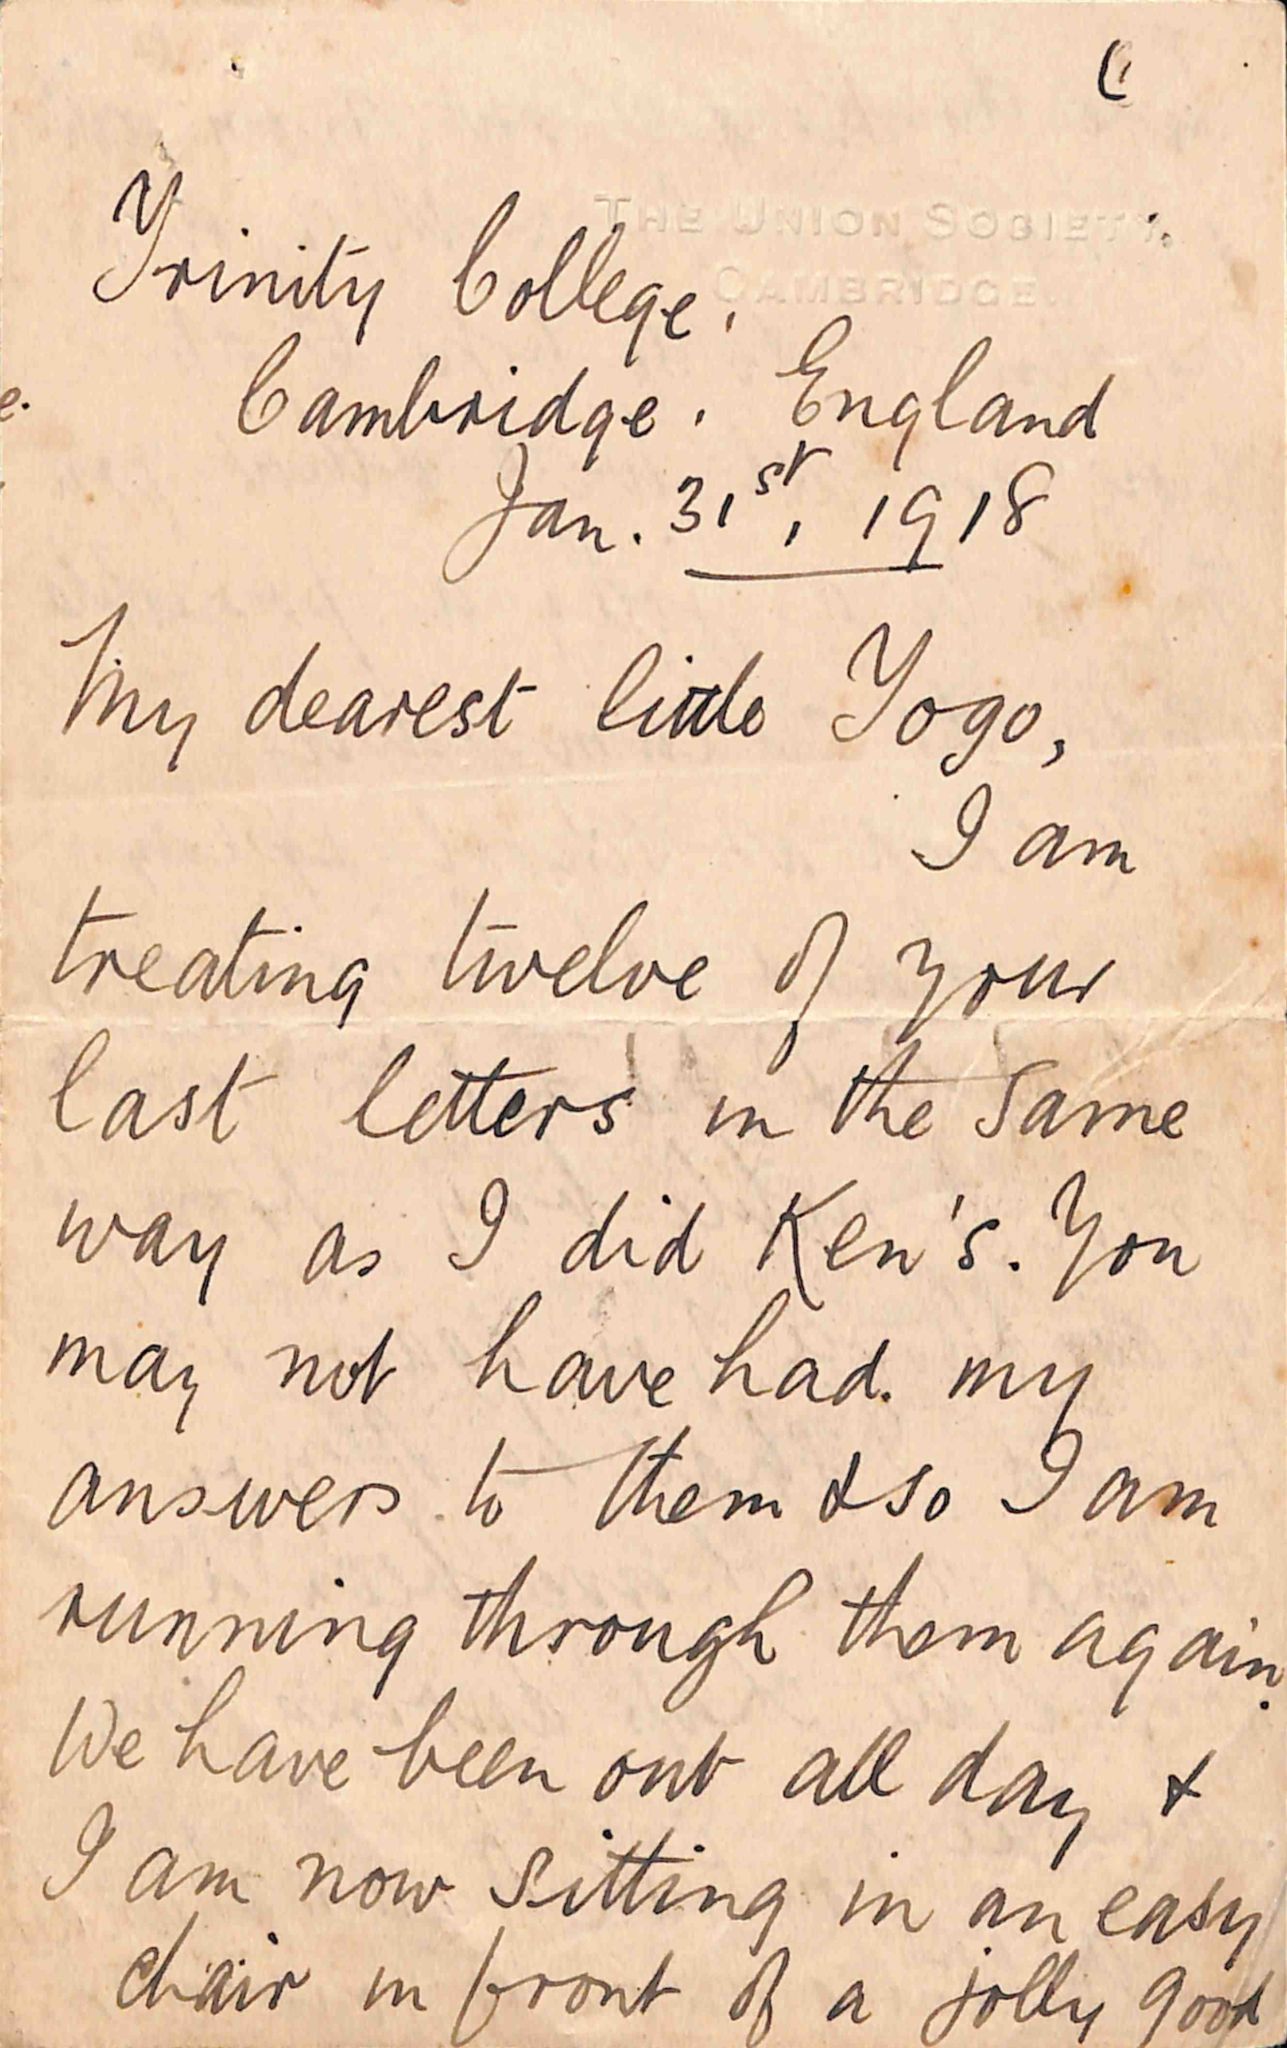 THE UNION SOCIETY,
CAMBRIDGE.
Trinity College,
Cambridge, England
Jan. 31st, 1918
My dearest little Yogo,
I am
treating twelve of your
last letters in the same
way as I did Ken's. You
may not have had my
answers to them & so I am
running through them again.
We have been out all day &
I am now sitting in an easy
chair in front of a jolly good